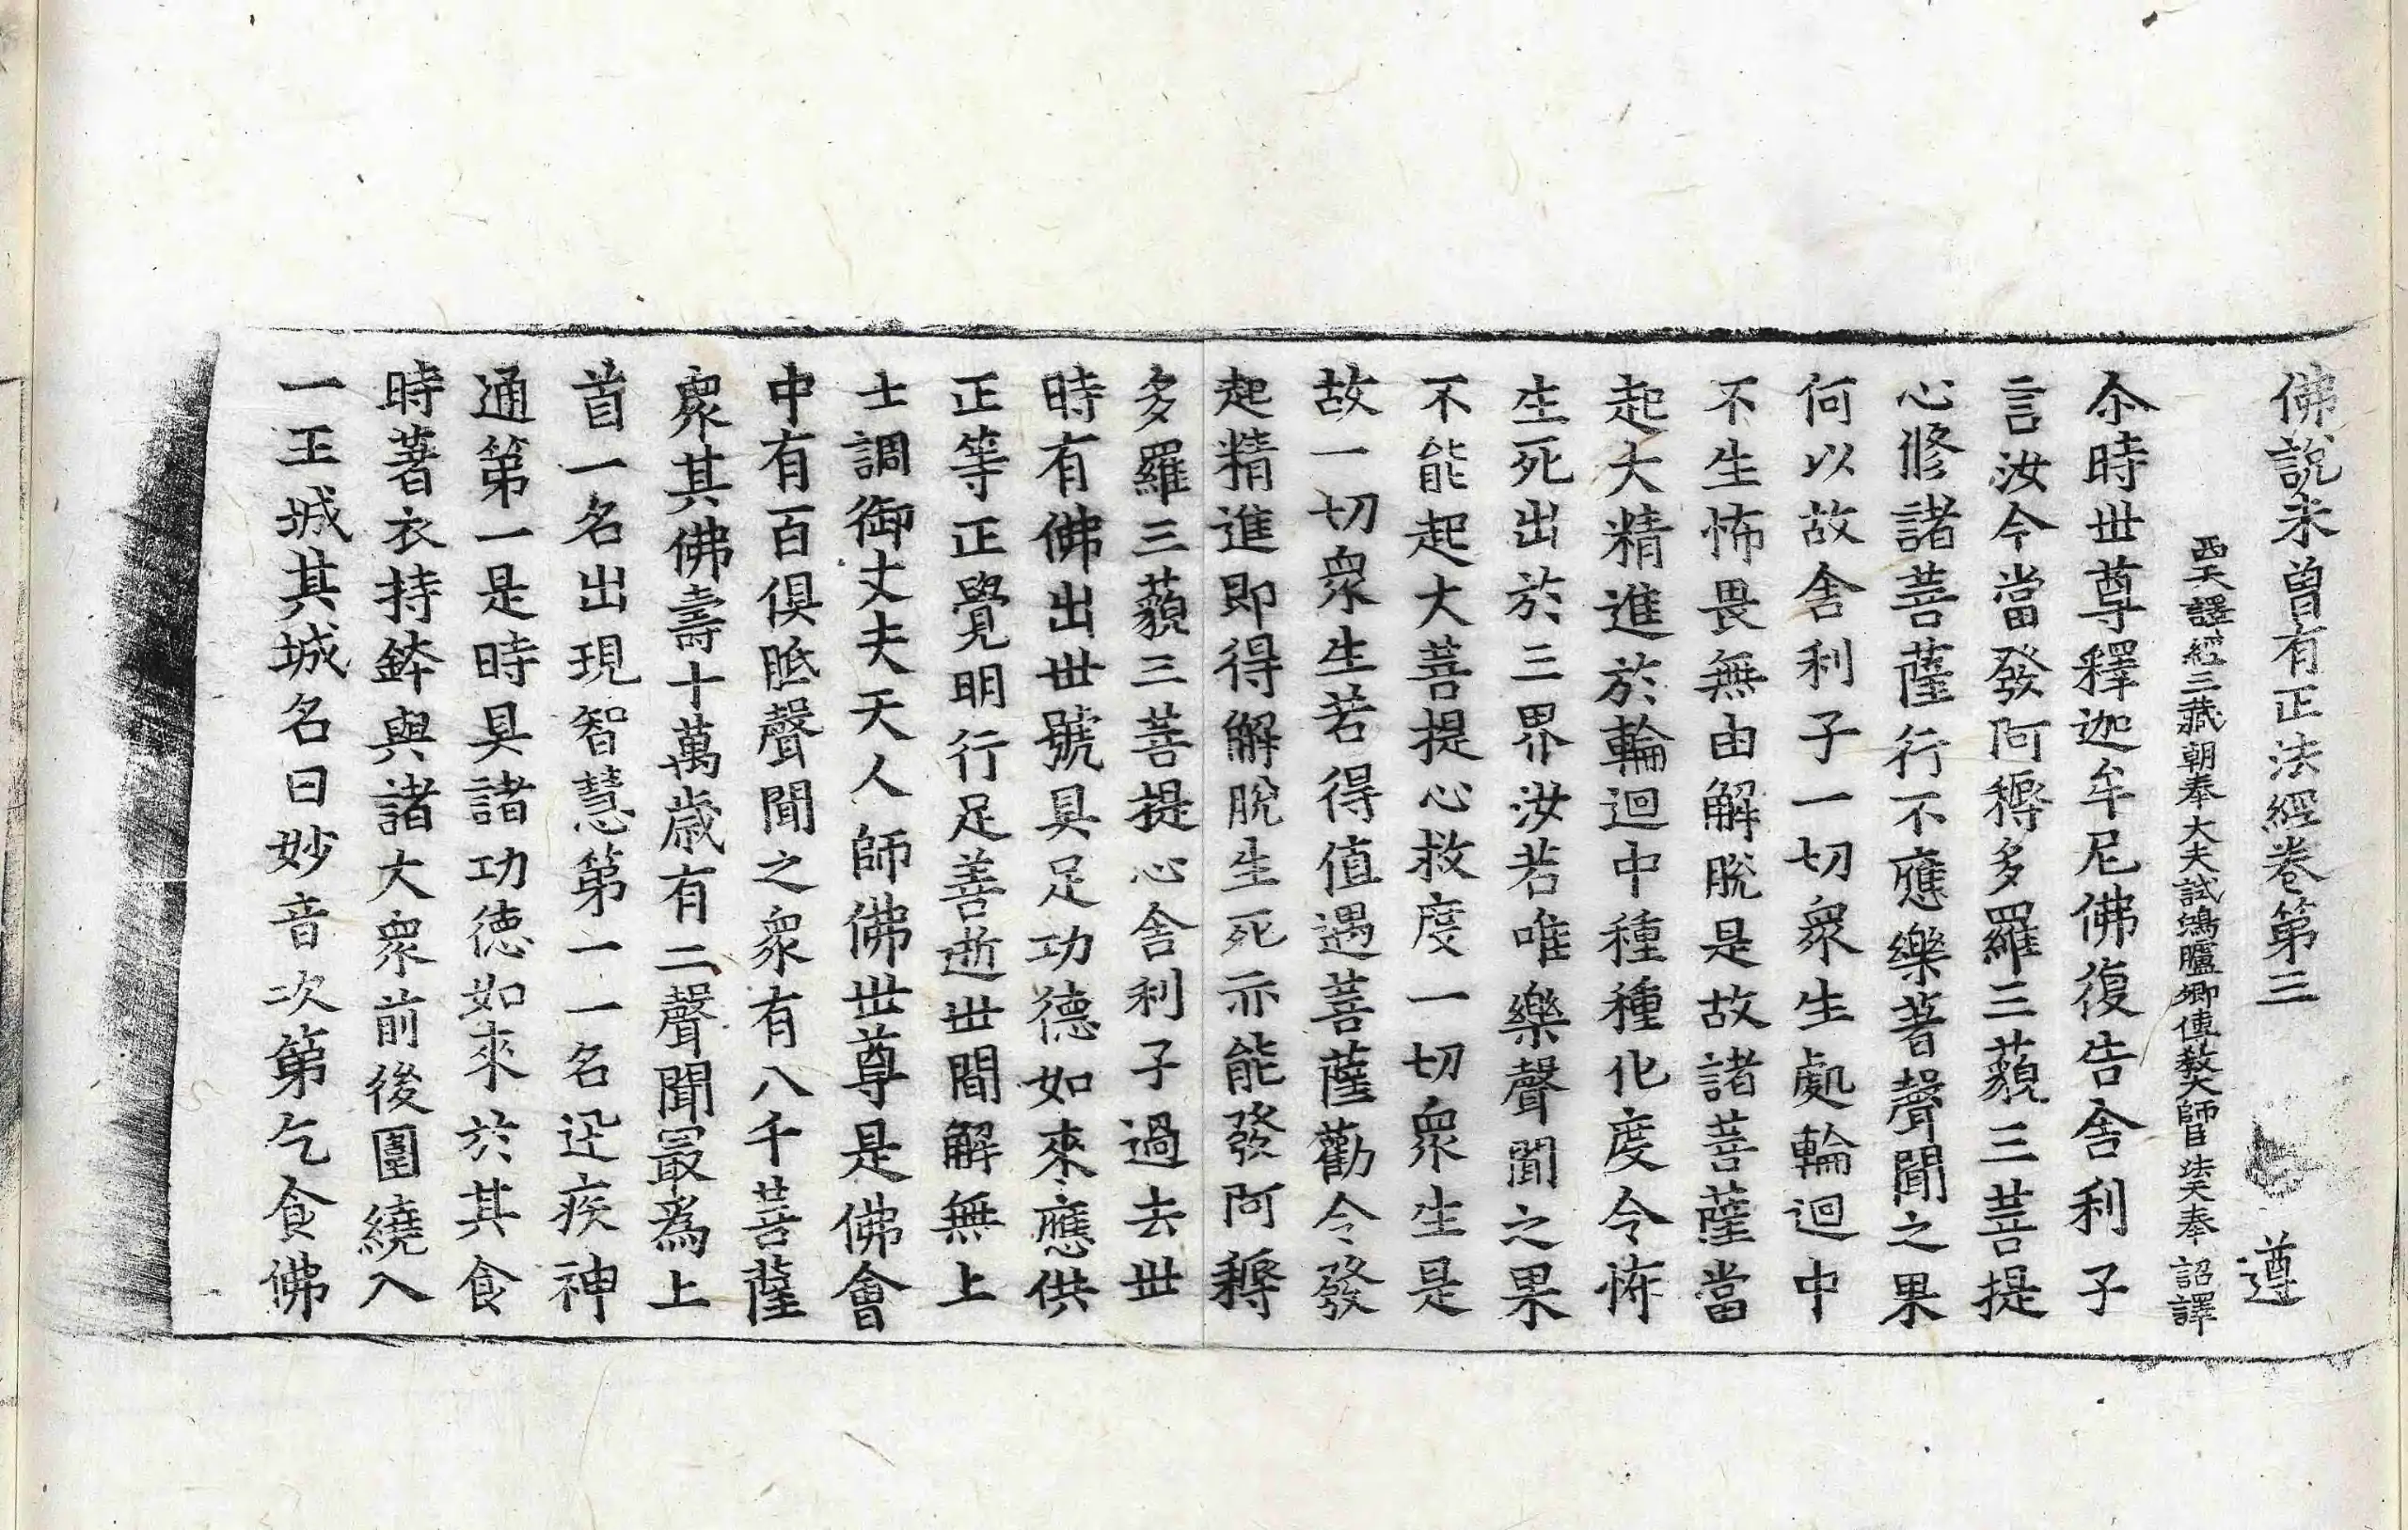 佛說未曾有正法經卷第三 遵
西天譯經三藏朝奉大夫試鴻臚卿傳敎大師臣法天奉 詔譯
尒時世尊釋迦牟尼佛復告舍利子
言汝今當發阿耨多羅三藐三菩提
心修諸菩薩行不應樂著聲聞之果
何以故舍利子一切衆生處輪迴中
不生怖畏無由解脫是故諸菩薩當
起大精進於輪迴中種種化度令怖
生死出於三界汝若唯樂聲聞之果
不能起大菩提心救度一切衆生是
故一切衆生若得值遇菩薩勸令發
起精進即得解脫生死亦能發阿耨
多羅三藐三菩提心舍利子過去世
時有佛出世號具足功德如來應供
正等正覺明行足善逝世間解無上
士調御丈夫天人師佛世尊是佛會
中有百俱胝聲聞之衆有八千菩薩
衆其佛壽十萬歲有二聲聞最爲上
首一名出現智慧第一一名迅疾神
通第一是時具諸功德如來於其食
時著衣持鉢與諸大衆前後圍繞入
一王城其城名曰妙音次第乞食佛